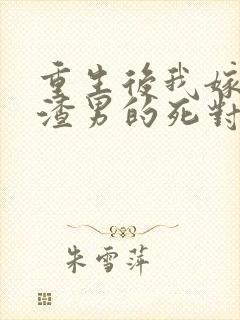 重生後我嫁
渣男的死對
朱雪萍